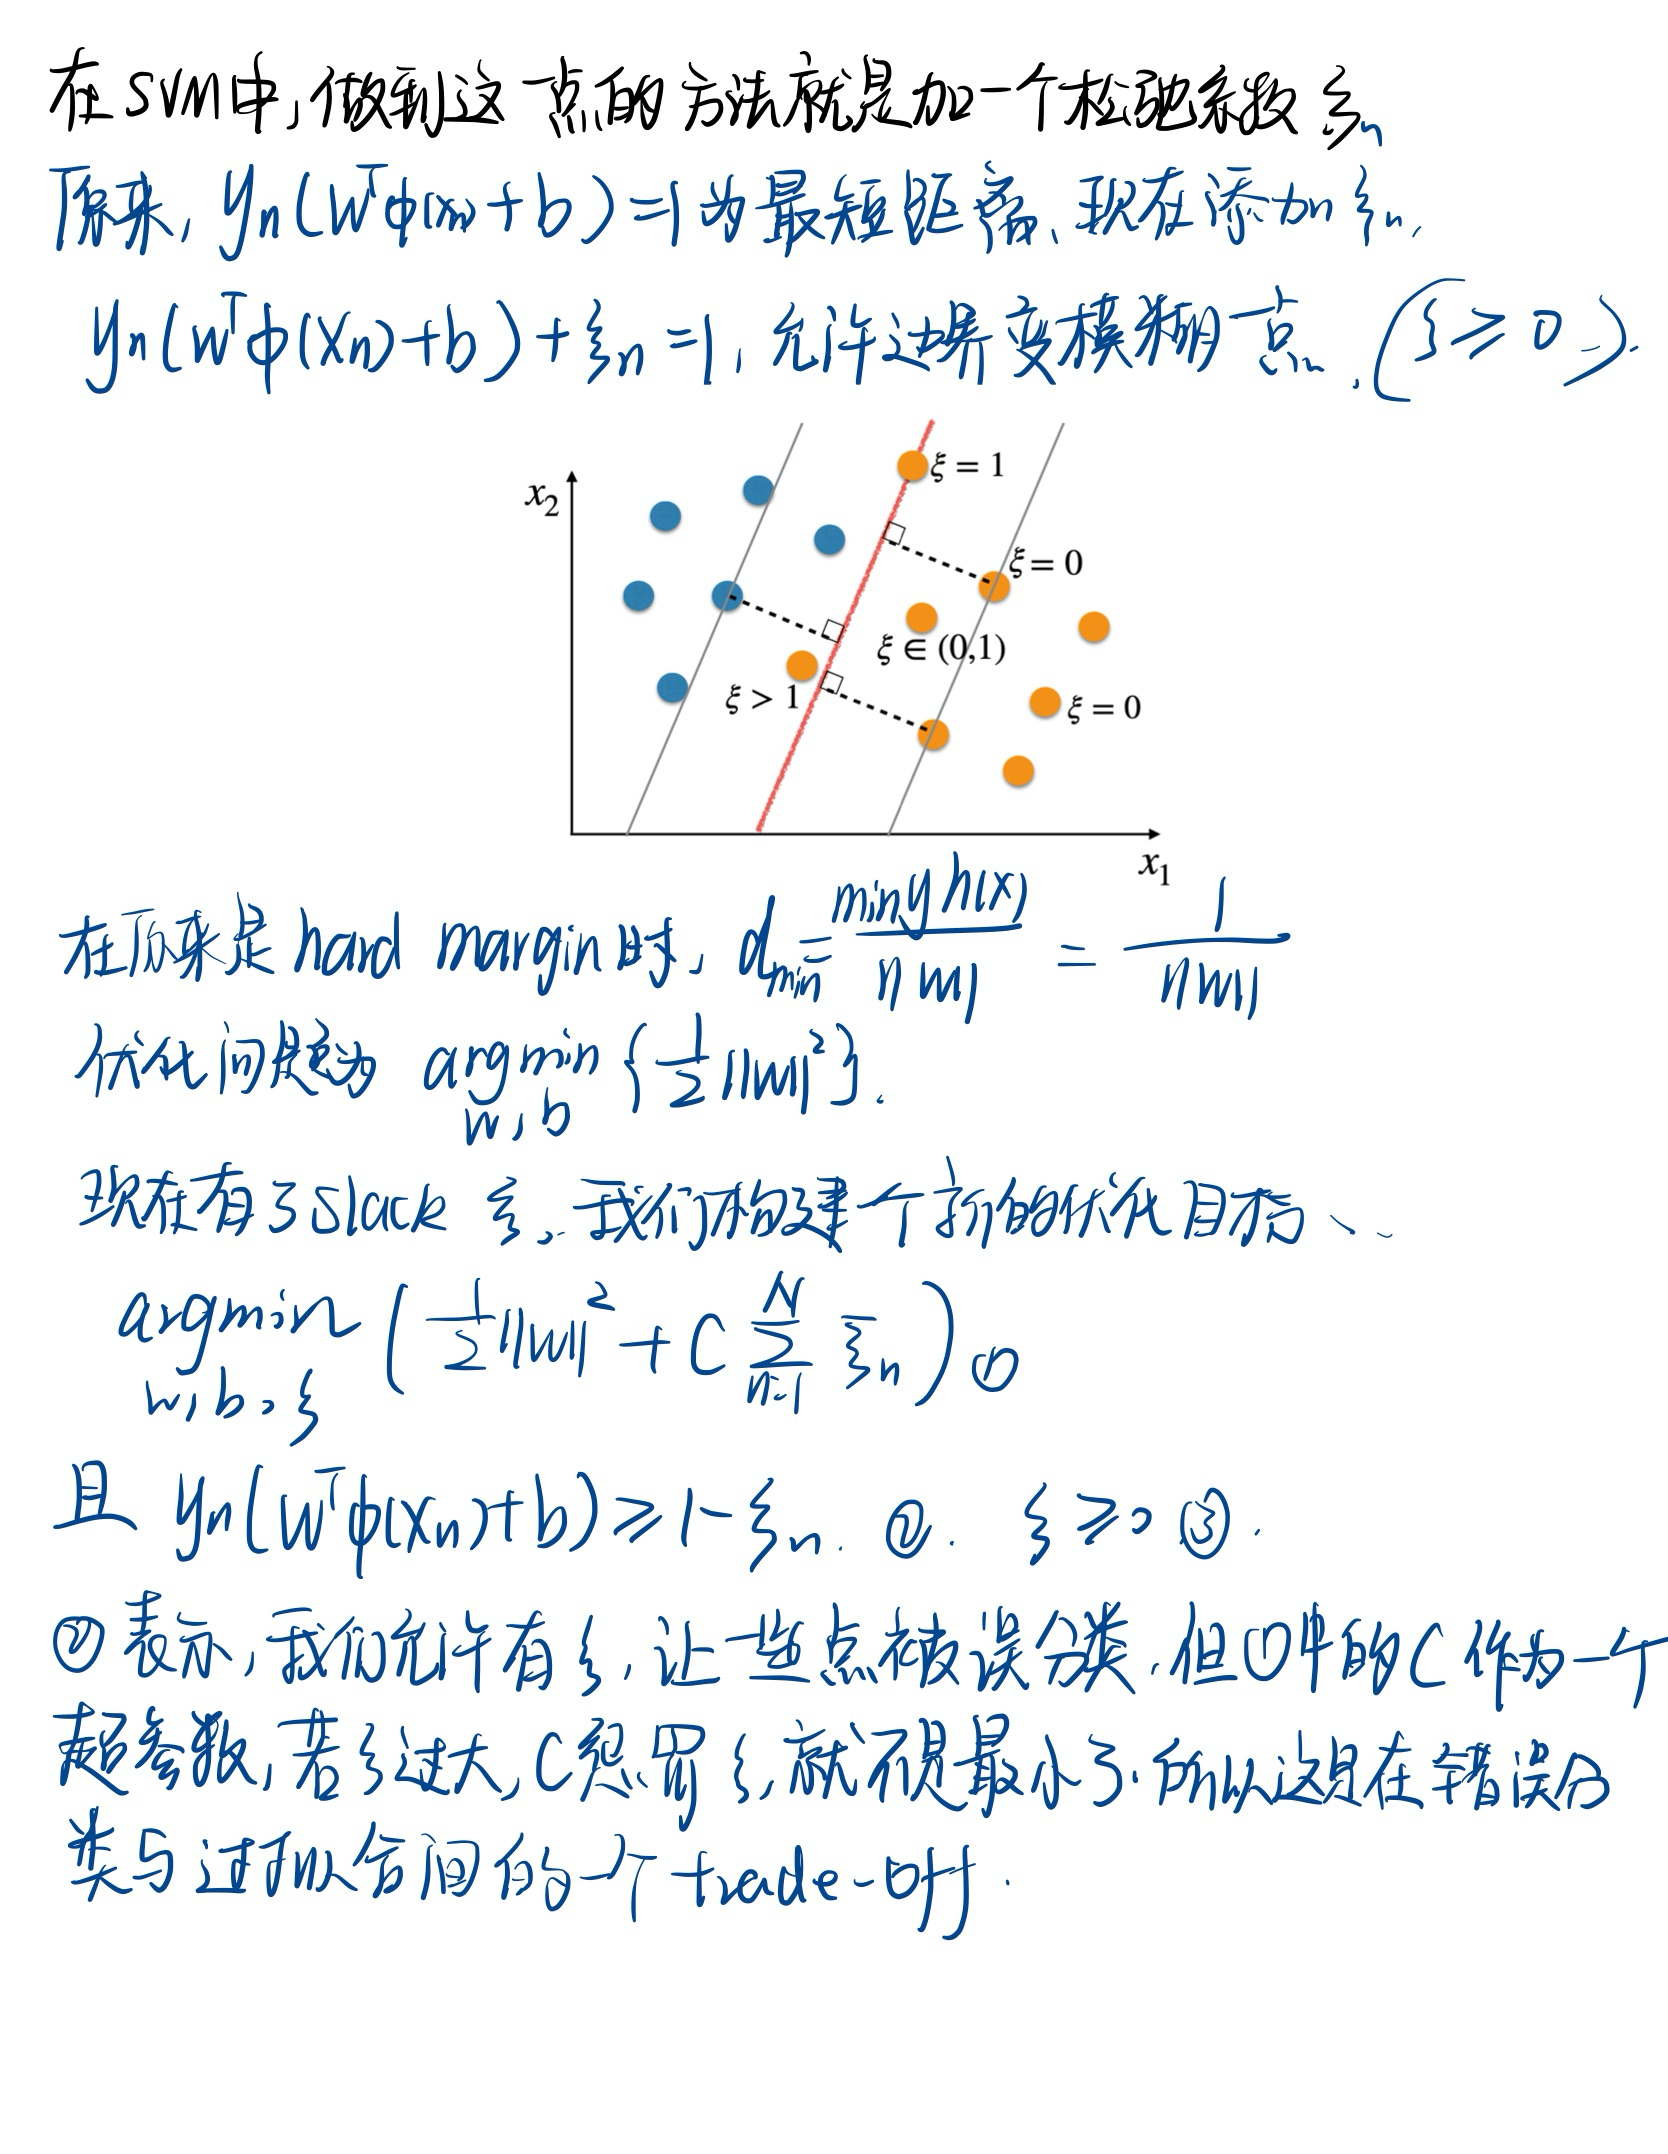 在SVM中,做到这一点的方法就是加一个松弛系数 ξₙ
原来, yₙ(wᵀφ(xₙ)+b)=1为最短距离、现在添加ξₙ,
yₙ(wᵀφ(xₙ)+b)+ξₙ=1, 允许边界变模糊一点. (ξ≥0).
x₂
ξ = 1
ξ = 0
ξ ∈ (0,1)
ξ > 1
ξ = 0
x₁
在原来是 hard margin 时, d_min = min y h(x) / ||w|| = 1 / ||w||
优化问题为 argmin_{w,b} {1/2 ||w||²}.
现在有了Slack ξ, 我们构建一个新的优化目标、
argmin_{w,b,ξ} (1/2 ||w||² + C ∑_{n=1}^{N} ξₙ) ①
且 yₙ(wᵀφ(xₙ)+b) ≥ 1-ξₙ. ②. ξ≥0 ③.
②表示,我们允许有ξ,让一些点被误分类.但①中的C作为一个
超参数,若ξ过大,C惩罚ξ,就不是最小了.所以这是在错误分
类与过拟合间的一个trade-off.